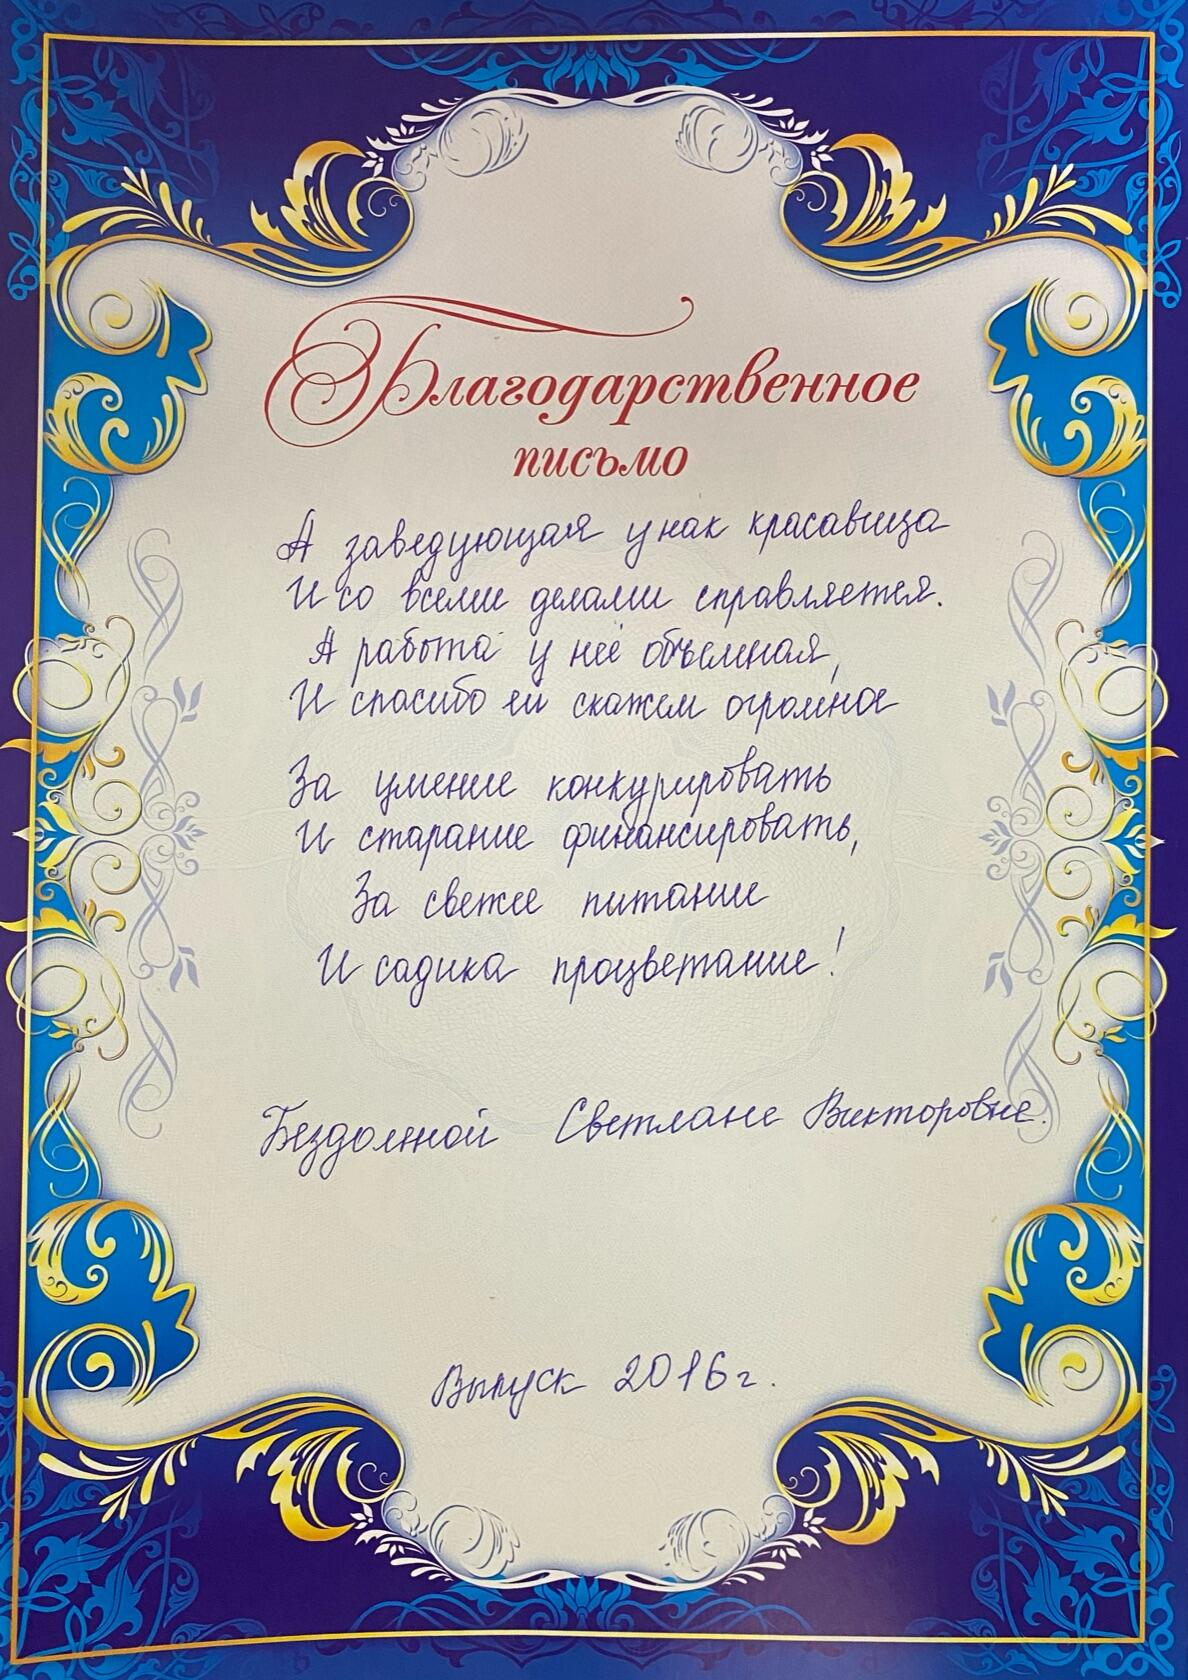 Благодарственное
письмо
А заведующая у нас красавица
И со всеми делами справляется.
А работа у неё объемная,
И спасибо ей скажем огромное
За умение конкурировать
И старание финансировать,
За свежее питание
И садика процветание!
Светлане Викторовне.
Выпуск 2016 г.